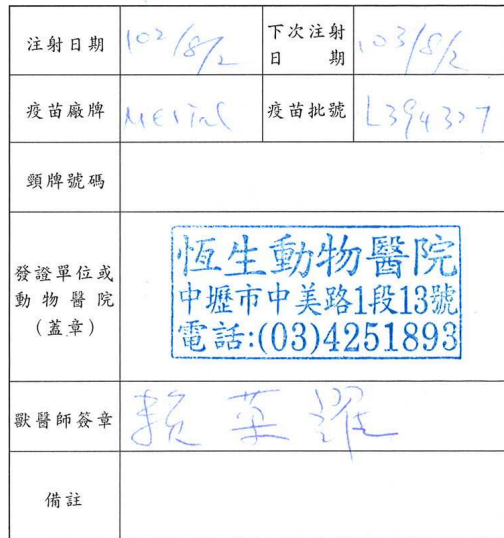 注射日期 102/8/2 下次注射日期 103/8/2
疫苗廠牌 Merial 疫苗批號 L394327
頸牌號碼
發證單位或
動物醫院
(蓋章)
恆生動物醫院
中壢市中美路1段13號
電話:(03)4251893
獸醫師簽章 賴英耀
備註